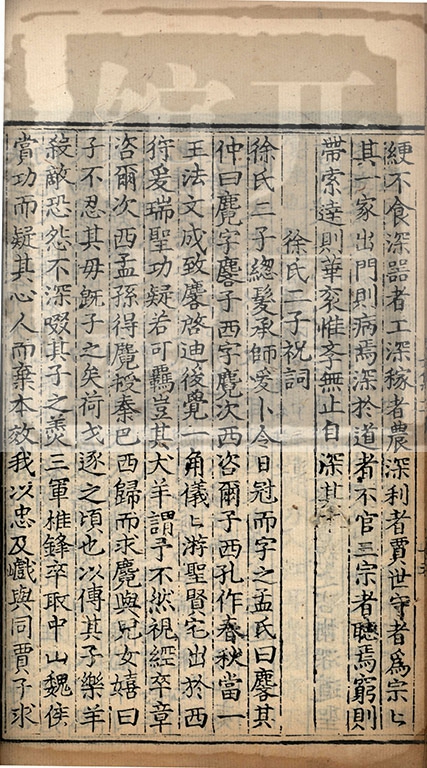 綆不食深器者工深稼者農深利者賈世守者爲宗〻
其一家出門則病焉深於道者不官三宗者聽焉窮則
帶索達則華衮惟李無止自深其
徐氏二子祝詞
徐氏二子緫髮承師爰卜今日冠而字之孟氏曰麐其
仲曰麑字麐子西字麑次西咨爾子西孔作春秋當一
王法文成致麐啓迪後覺一角儀〻游聖賢宅出於西
狩爰瑞聖功疑若可羈豈其犬羊謂予不然視經卒章
咨爾次西孟孫得麑授秦巴西歸而求麑與兒女嬉曰
子不忍其母旣子之矣荷戈逐之頃也以傅其子樂羊
殺敵恐怨不深啜其子之羮三軍椎鋒卒取中山魏侯
賞功而疑其心人而棄本效我以忠及巇與同賈子求